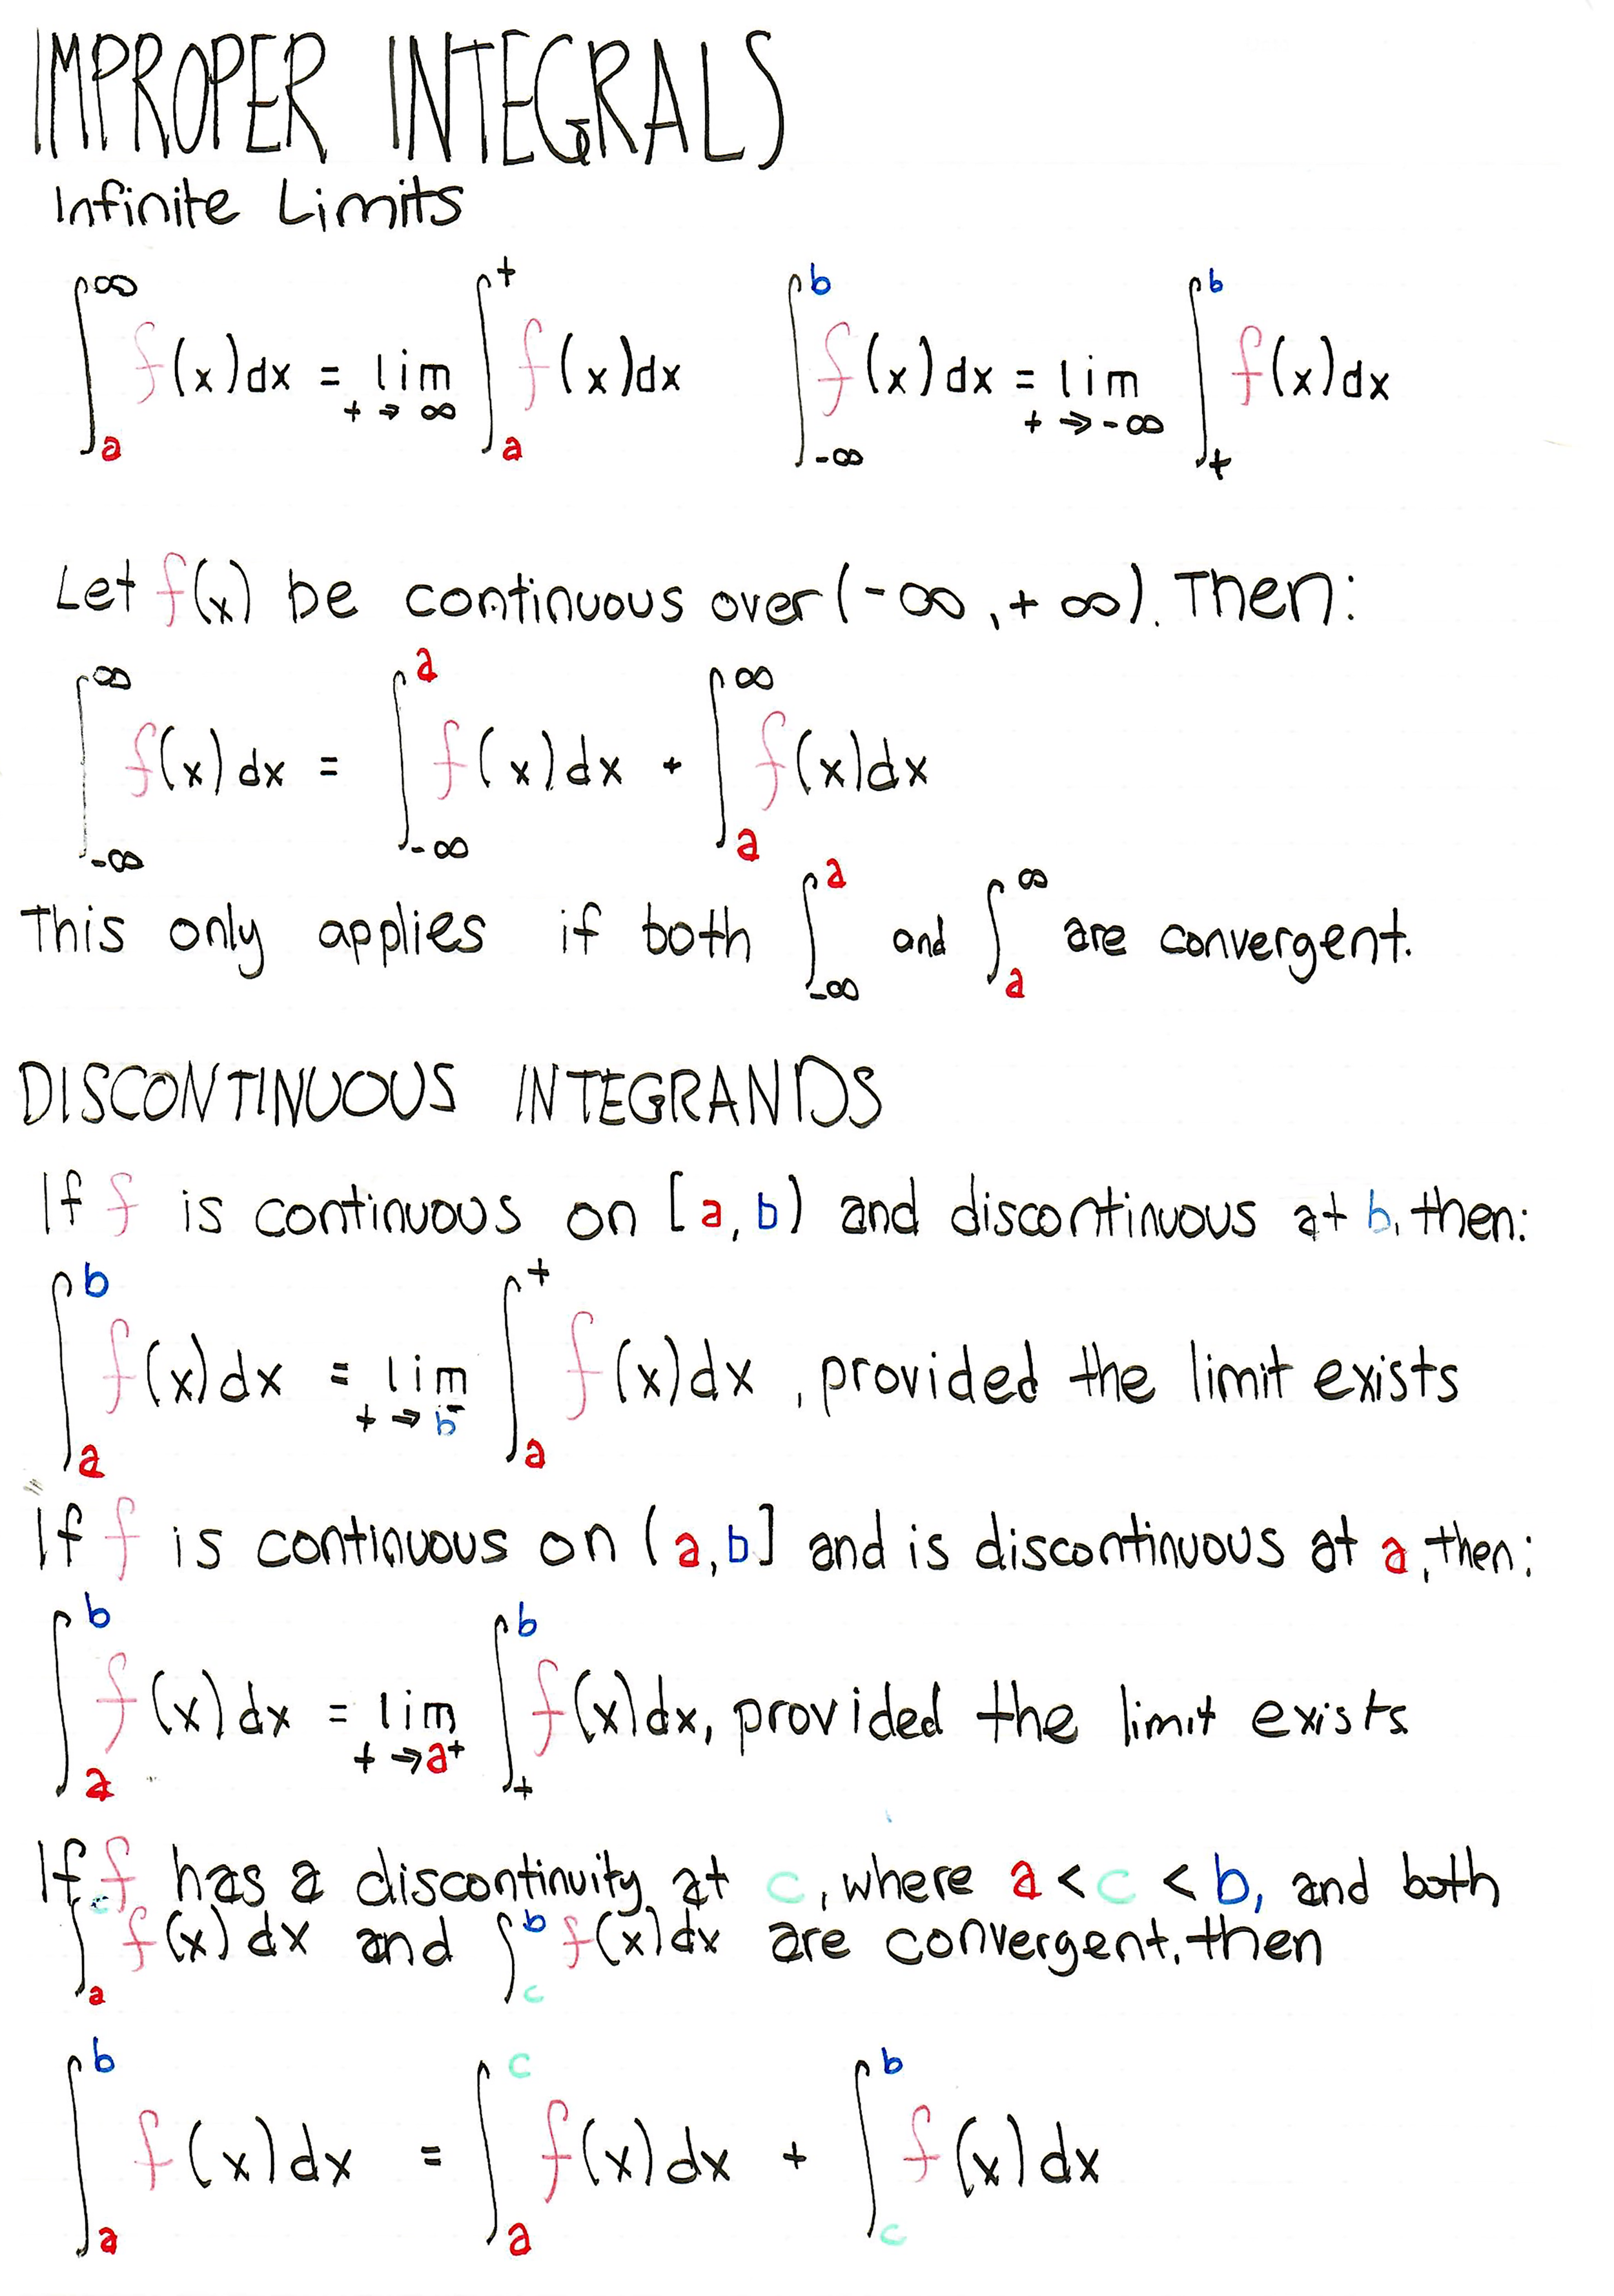 IMPROPER INTEGRALS
Infinite Limits
∫_a^∞ f(x)dx = lim_{t→∞} ∫_a^t f(x)dx    ∫_{-∞}^b f(x)dx = lim_{t→-∞} ∫_t^b f(x)dx
Let f(x) be continuous over (-∞,+∞). Then:
∫_{-∞}^∞ f(x)dx = ∫_{-∞}^a f(x)dx + ∫_a^∞ f(x)dx
This only applies if both ∫_{-∞}^a and ∫_a^∞ are convergent.
DISCONTINUOUS INTEGRANDS
If f is continuous on [a,b) and discontinuous at b, then:
∫_a^b f(x)dx = lim_{t→b^-} ∫_a^t f(x)dx, provided the limit exists
If f is continuous on (a,b] and is discontinuous at a, then:
∫_a^b f(x)dx = lim_{t→a^+} ∫_t^b f(x)dx, provided the limit exists
If f has a discontinuity at c, where a < c < b, and both
∫_a^c f(x)dx and ∫_c^b f(x)dx are convergent, then
∫_a^b f(x)dx = ∫_a^c f(x)dx + ∫_c^b f(x)dx